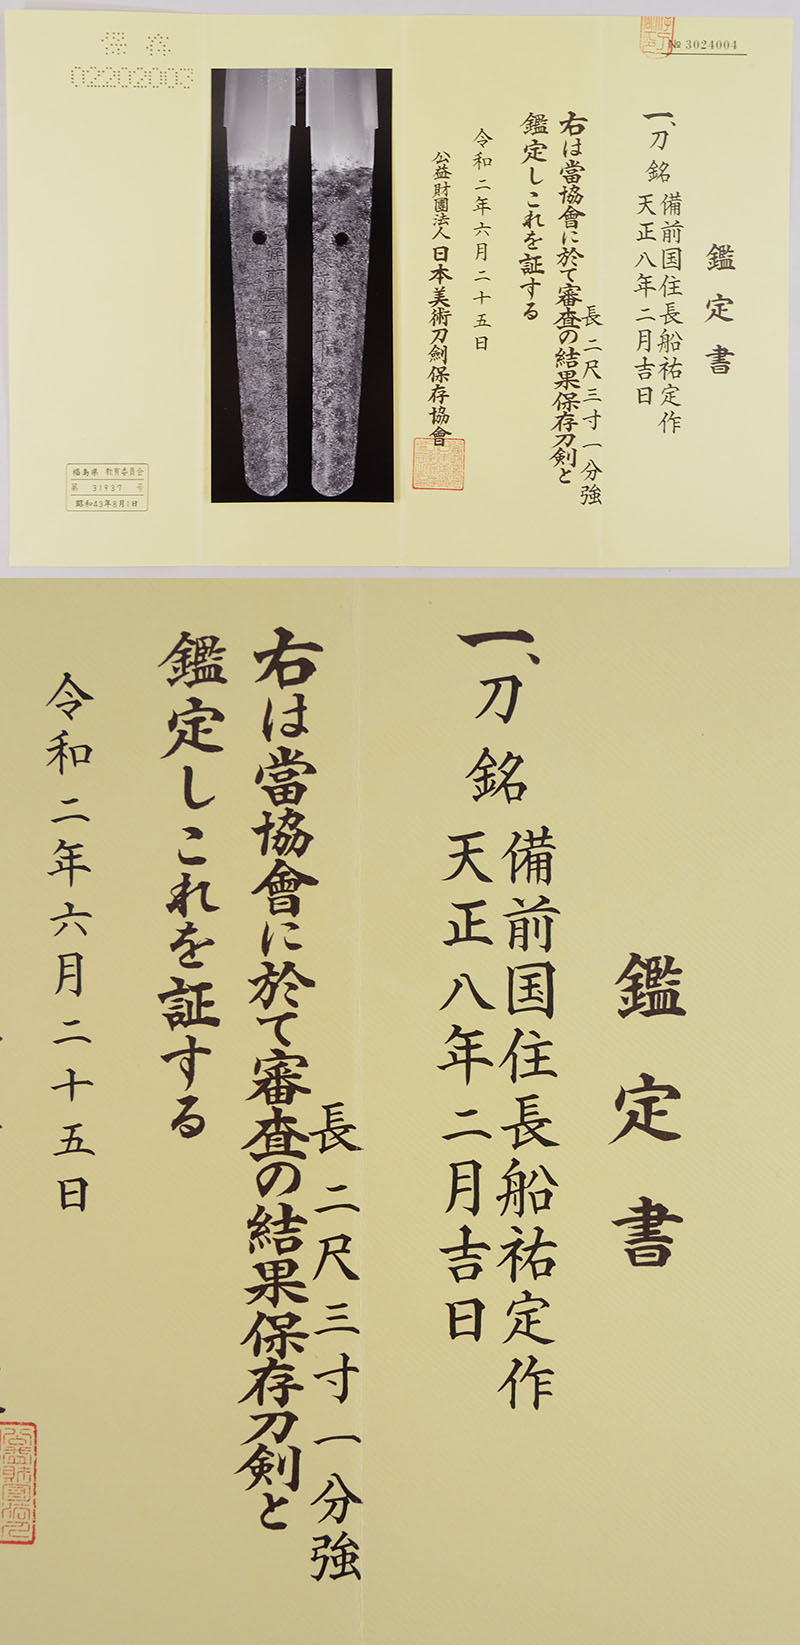 保存
02202003
№ 3024004
鑑定書
一、刀 銘 備前国住長船祐定作
天正八年二月吉日
長 二尺三寸一分強
右は當協會に於て審査の結果保存刀剣と
鑑定しこれを証する
令和二年六月二十五日
公益財團法人 日本美術刀劍保存協會
福島県 教育委員会
第 31937 号
昭和43年8月1日
鑑定書
一、刀 銘 備前国住長船祐定作
天正八年二月吉日
長 二尺三寸一分強
右は當協會に於て審査の結果保存刀剣と
鑑定しこれを証する
令和二年六月二十五日